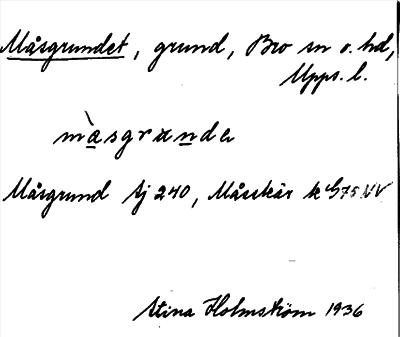 Måsgrundet, grund, Bro sn o. hd,
Upps. l.
màsgrundə
Måsgrund Sj 240, Måsskär k G75 NV
Stina Holmström 1936